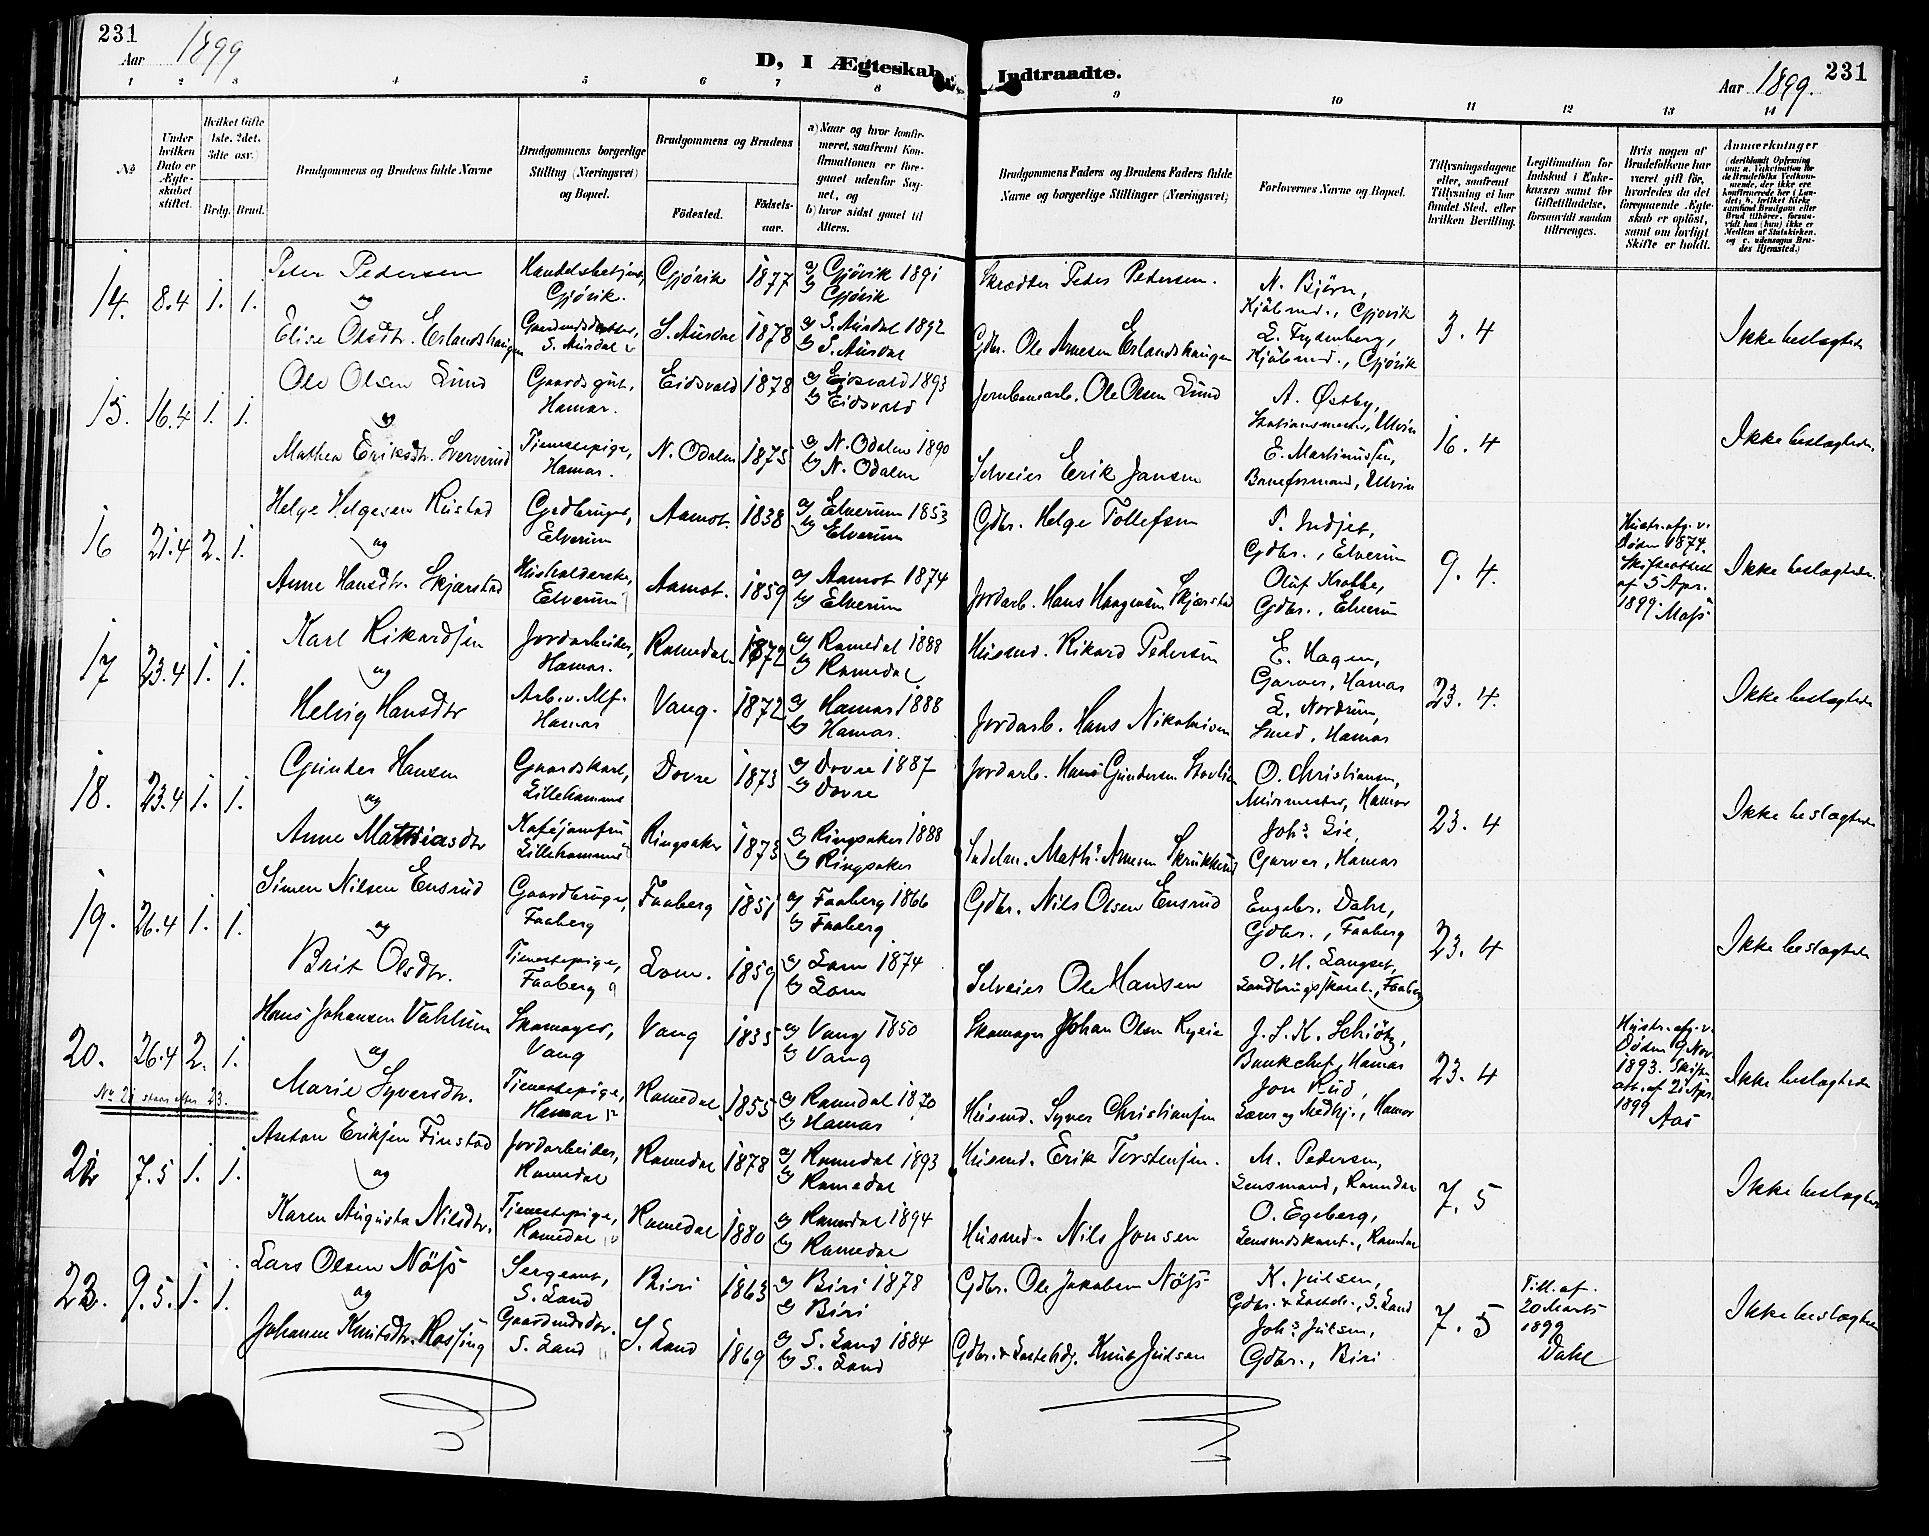 231
Aar 1899
D, I Ægteskab Indtraadte.
Aar 1899.
231
1 2 3 4 5 6 7 8 9 10 11 12 13 14
No
Under hvilken Dato er Ægteskabet stiftet.
Hvilket Gifte 1ste, 2det, 3dte osv.)
Brdg. Brud.
Brudgommens og Brudens fulde Navne
Brudgommens borgerlige Stilling (Næringsvei) og Bopæl.
Brudgommens og Brudens
Fødested.
Fødselsaar.
a) Naar og hvor konfirmeret, saafremt Konfirmationen er foregaaet udenfor Sognet, og
b) hvor sidst gaaet til Alters.
Brudgommens Faders og Brudens Faders fulde Navne og borgerlige Stillinger (Næringsvei)
Forlovernes Navne og Bopæl.
Tillysningsdagene eller, saafremt Tillysning ei har fundet Sted, efter hvilken Bevilling.
Legitimation for Indskud i Enkekassen samt for Giftetilladelse, forsaavidt saadan tiltrænges.
Hvis nogen af Brudefolkene har været gift før, hvorledes da det foregaaende Ægteskab er opløst, samt om lovligt Skifte er holdt.
Anmærkninger
14. 8.4 1. 1.
Peter Pedersen
og
Elise Olsdtr. Erlandshaugen
Handelsbetjent, Gjövik.
Gaardmdsdatter, S. Aurdal
Gjövik 1877
S. Aurdal 1878
a) Gjövik 1891
b) Gjövik
a) S. Aurdal 1892
b) S. Aurdal
Skrædder Peder Pedersen.
Gdbr. Ole Arnesen Erlandshaugen
N. Bjørn,
Kjöbmd., Gjövik
L. Frydenberg,
Kjöbmd., Gjövik
3.4
Ikke beslægtede
15. 16.4 1. 1.
Ole Olsen Lund
og
Mathea Eriksdtr. Sververud
Gaardsgut, Hamar.
Tjenestepige, Hamar.
Eidsvold 1878
N. Odalen 1875
a) Eidsvold 1893
b) Eidsvold
a) N. Odalen 1890
b) N. Odalen
Jernbanearb. Ole Olsen Lund
Selveier Erik Jansen
A. Østby,
Stationsmester, Ulvin
E. Martinussen,
Baneformand, Ulvin
16.4
Ikke beslægtede.
16 21.4 2. 1.
Helge Helgesen Rustad
og
Anne Hansdtr. Skjærstad
Grdbruger, Elverum
Husholderske, Elverum
Aamot. 1838
Aamot. 1859
a) Elverum 1853
b) Elverum
a) Aamot 1874
b) Elverum
Gdbr. Helge Tollefsen
Jordarb. Hans Haagensen Skjærstad
P. Indset,
Gdbr., Elverum
Oluf Krabbe,
Gdbr., Elverum
9.4.
Hustr. afg. v. Døden 1874. Skifteattest af 5 Apr. 1899 Moss
Ikke beslægtede.
17 23.4 1. 1.
Karl Rikardsen
og
Helvig Hansdtr
Jordarbeider, Hamar.
Arb. v. Mf. Hamar
Romedal 1872
Vang. 1872
a) Romedal 1888
b) Romedal
a) Hamar 1888
b) Hamar.
Husmd. Rikard Pedersen
Jordarb. Hans Nikolaisen
E. Hagen,
Garver, Hamar
L. Nordrum,
Smed, Hamar
23.4.
Ikke beslægtede
18. 23.4 1. 1.
Gunder Hansen
og
Anne Mathiasdtr
Gaardskarl, Lillehammer
Kaféjomfru Lillehammer
Dovre 1873
Ringsaker 1873
a) Dovre 1887
b) Dovre
a) Ringsaker 1888
b) Ringsaker
Jordarb. Hans Gundersen
Math. Arnesen Skrukkerud
O. Christiansen,
Murmester, Hamar
Johs. Lie,
Garver, Hamar
23.4
Ikke beslægtede
19. 26.4 1. 1.
Simen Nilsen Ensrud
og
Brit Olsdtr.
Gaardbruger, Faaberg
Tjenestepige, Faaberg
Faaberg 1851
Lom. 1859
a) Faaberg 1866
b) Faaberg
a) Lom 1874
b) Lom
Gdbr. Nils Olsen Ensrud
Selveier Ole Hansen
Engebr. Dahl,
Gdbr., Faaberg
O. H. Langset,
Landbrugsskoleb., Faaberg
23.4
Ikke beslægtede
20. 26.4 2. 1.
Hans Johansen Vahlum
og
Marie Syversdtr.
Skomager, Vang
Tjenestepige, Hamar
Vang 1835
Romedal 1855
a) Vang 1850
b) Vang
a) Romedal 1870
b) Hamar
Skomager Johan Olsen
Husmd. Syver Christiansen
J. S. K. Schiötz,
Bankchef, Hamar
Jon Rud,
Lærer og Medhj., Hamar
23.4
Hustr. afg. v. Døden 9 Nov. 1893. Skifteatt. af 21 Apr. 1899 Aas
Ikke beslægtede
No 21 staar efter 23.
22 7.5 1. 1.
Anton Eriksen Finstad
og
Karen Augusta Nilsdtr.
Jordarbeider, Romedal
Tjenestepige, Romedal
Romedal 1878
Romedal 1880
a) Romedal 1893
b) Romedal
a) Romedal 1894
b) Romedal
Husmd. Erik Torstensen.
Husmd. Nils Jonsen
M. Pedersen,
Lensmand, Romedal
O. Egeberg,
Lensmdskont., Romedal
7.5
Ikke beslægtede
23. 9.5. 1. 1.
Lars Olsen Nöss
og
Johanne Knutsdtr. Rossing
Sergeant, S. Land
Gaardmdsdtr. S. Land
Biri 1863
S. Land 1869
a) Biri 1878
b) Biri
a) S. Land 1884
b) S. Land
Gdbr. Ole Jakobsen Nöss
Gdbr. & Knut Julsen
K. Julsen,
Gdbr., S. Land
Johs. Julsen,
Gdbr., Biri
7.5
Till. af. 20 Marts 1899 Dahl
Ikke beslægtede